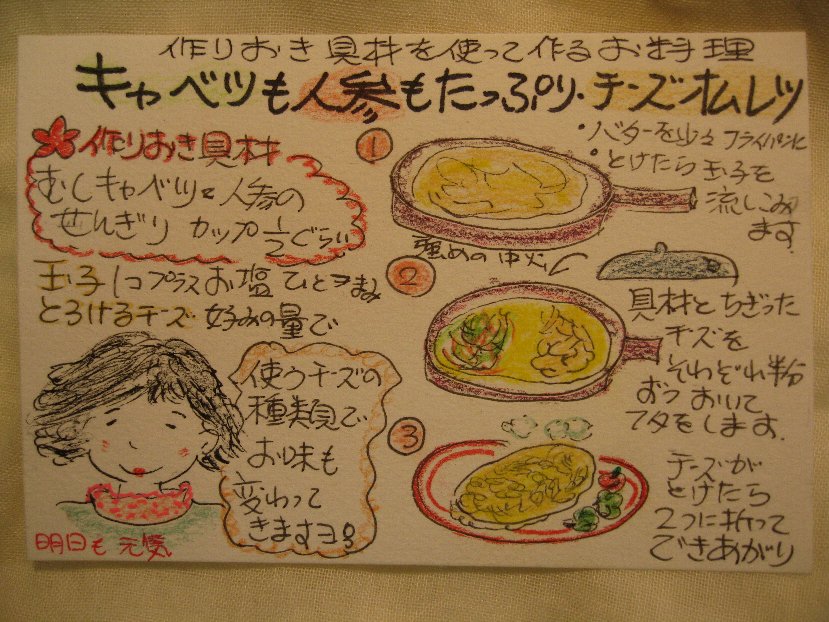 作りおき具材を使って作るお料理
キャベツも人参もたっぷり・チーズオムレツ
作りおき具材
むしキャベツと人参の
せんぎり カップ1/2ぐらい
玉子1コプラスお塩ひとつまみ
とろけるチーズ 好みの量で
使うチーズの
種類で
お味も
変わって
きますヨ!
明日も元気
1
・バターを少々フライパンに
・とけたら玉子を
流しこみ
ます.
強めの中火
2
具材とちぎった
チーズを
それぞれ半分
おいて
フタをします.
3
チーズが
とけたら
2つに折って
できあがり